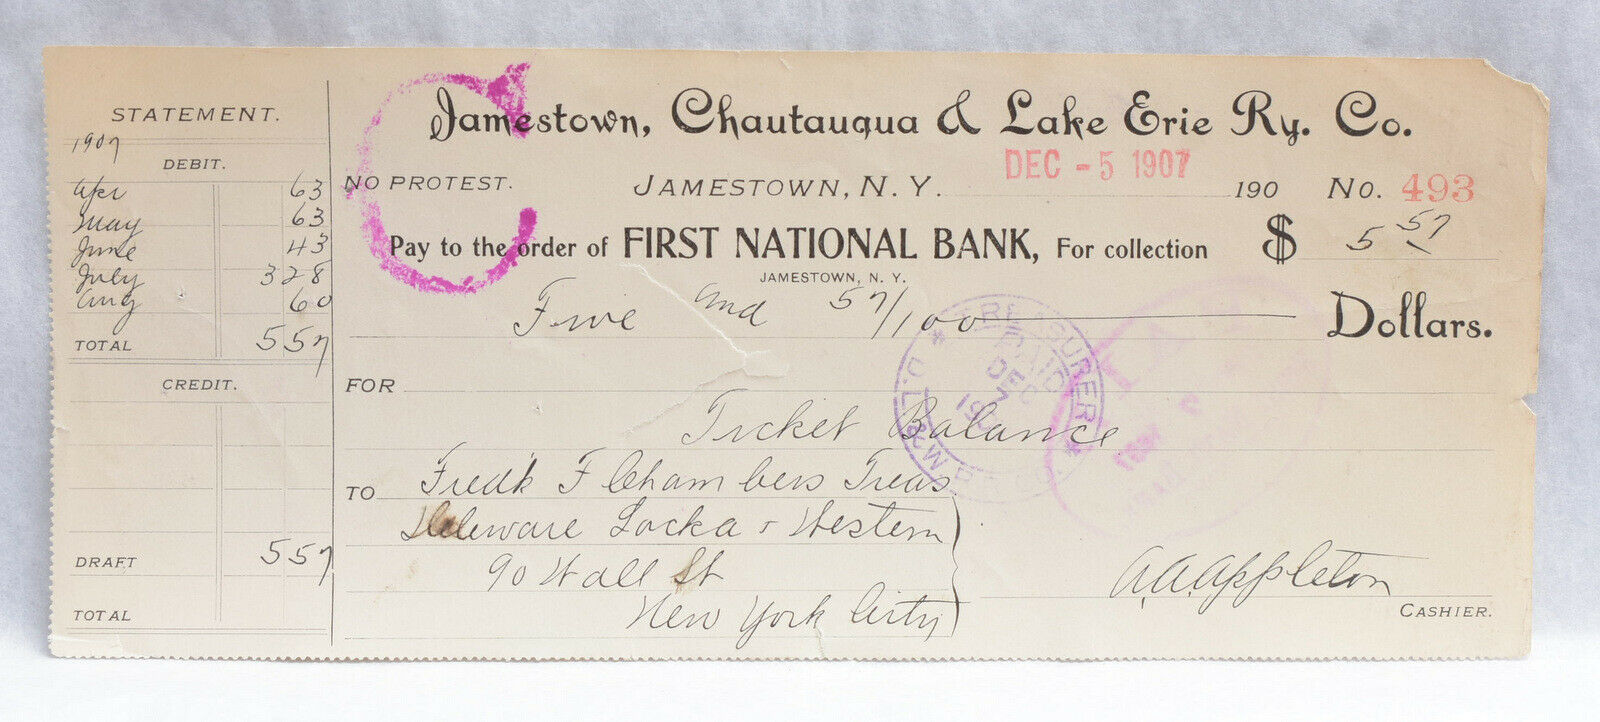 STATEMENT.
1907
DEBIT.
Apr 63
May 63
June 43
July 3 28
Aug 60
TOTAL 5 57
CREDIT.
DRAFT 5 57
TOTAL
Jamestown, Chautauqua & Lake Erie Ry. Co.
DEC - 5 1907
NO PROTEST. JAMESTOWN, N. Y. 190 No. 493
Pay to the order of FIRST NATIONAL BANK, For collection $ 5 57
JAMESTOWN, N. Y.
Five and 57/100 Dollars.
FOR
Ticket Balance
TO Fred'k F Chambers Treas
Deleware Lacka & Western
90 Wall St
New York City
A.A. Appleton
CASHIER.
TREASURER
PAID
DEC
7
190
D. L. & W. R.R. CO.